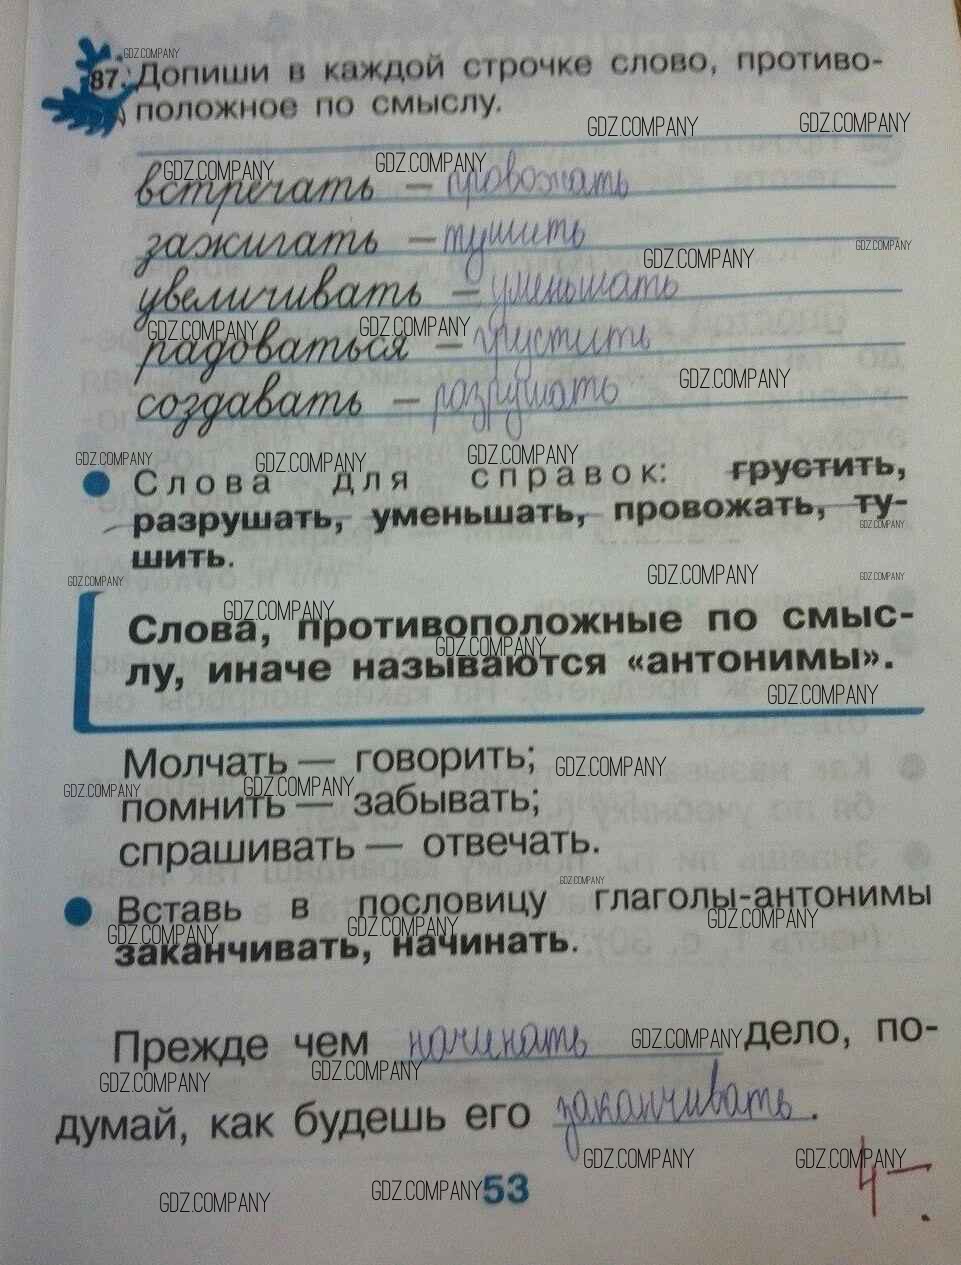 87. Допиши в каждой строчке слово, противо-
положное по смыслу.
встречать – провожать
зажигать – тушить
увеличивать – уменьшать
радоваться – грустить
создавать – разрушать
Слова для справок: грустить,
разрушать, уменьшать, провожать, ту-
шить.
Слова, противоположные по смыс-
лу, иначе называются «антонимы».
Молчать — говорить;
помнить — забывать;
спрашивать — отвечать.
Вставь в пословицу глаголы-антонимы
заканчивать, начинать.
Прежде чем начинать дело, по-
думай, как будешь его заканчивать.
53
4–
GDZ.COMPANY